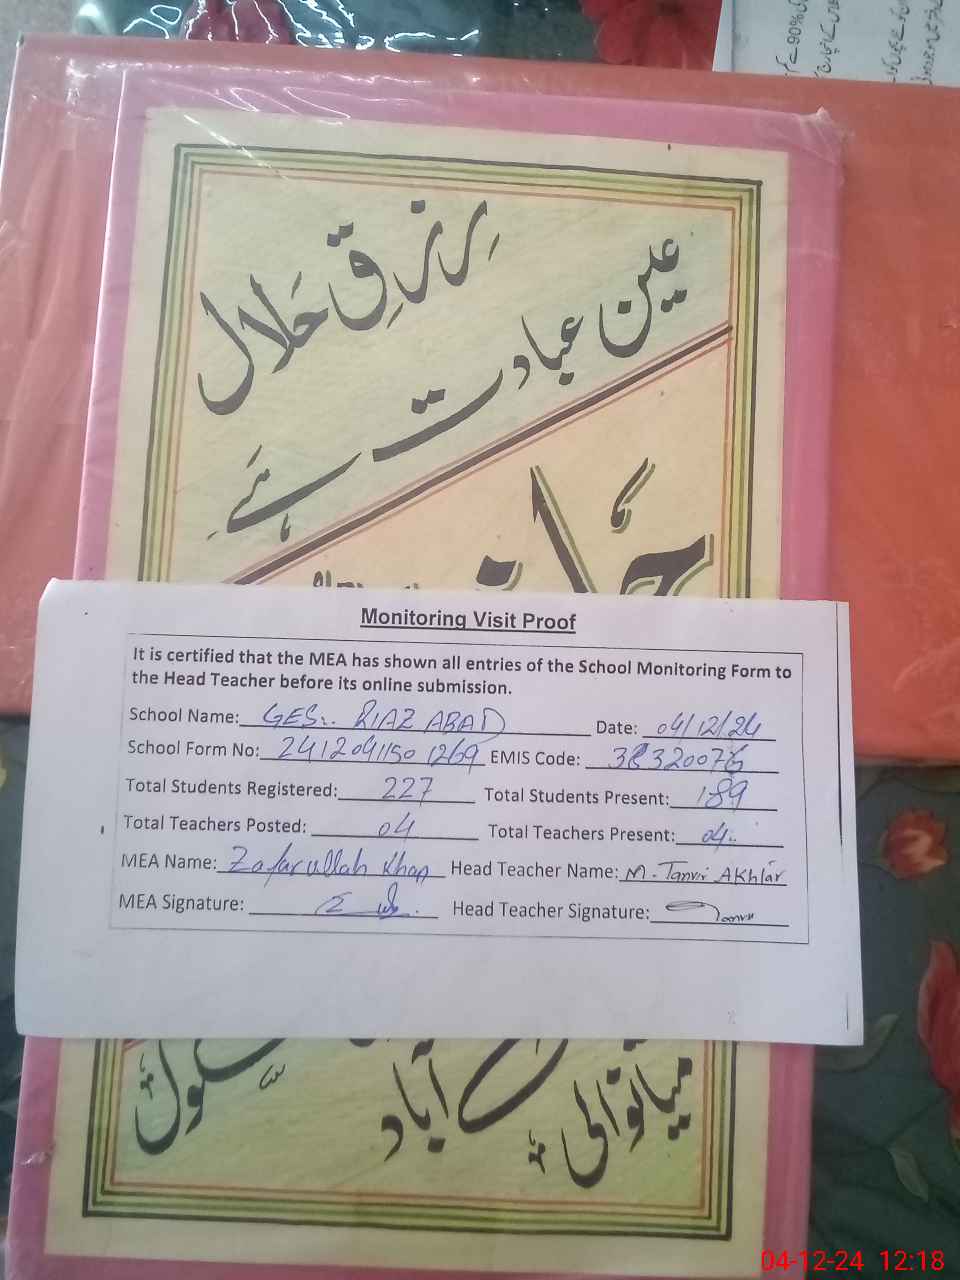 رزق حلال
عین عبادت ہے
Monitoring Visit Proof
It is certified that the MEA has shown all entries of the School Monitoring Form to
the Head Teacher before its online submission.
School Name: GES:. RIAZ ABAD Date: 04/12/24
School Form No: 24120411501269 EMIS Code:
Total Students Registered: 227 Total Students Present: 189
Total Teachers Posted: 04 Total Teachers Present: 04.
MEA Name: Zafarullah Khan Head Teacher Name: M. Tanvir AKhtar
MEA Signature: Head Teacher Signature:
آباد
میانوالی
04-12-24 12:18